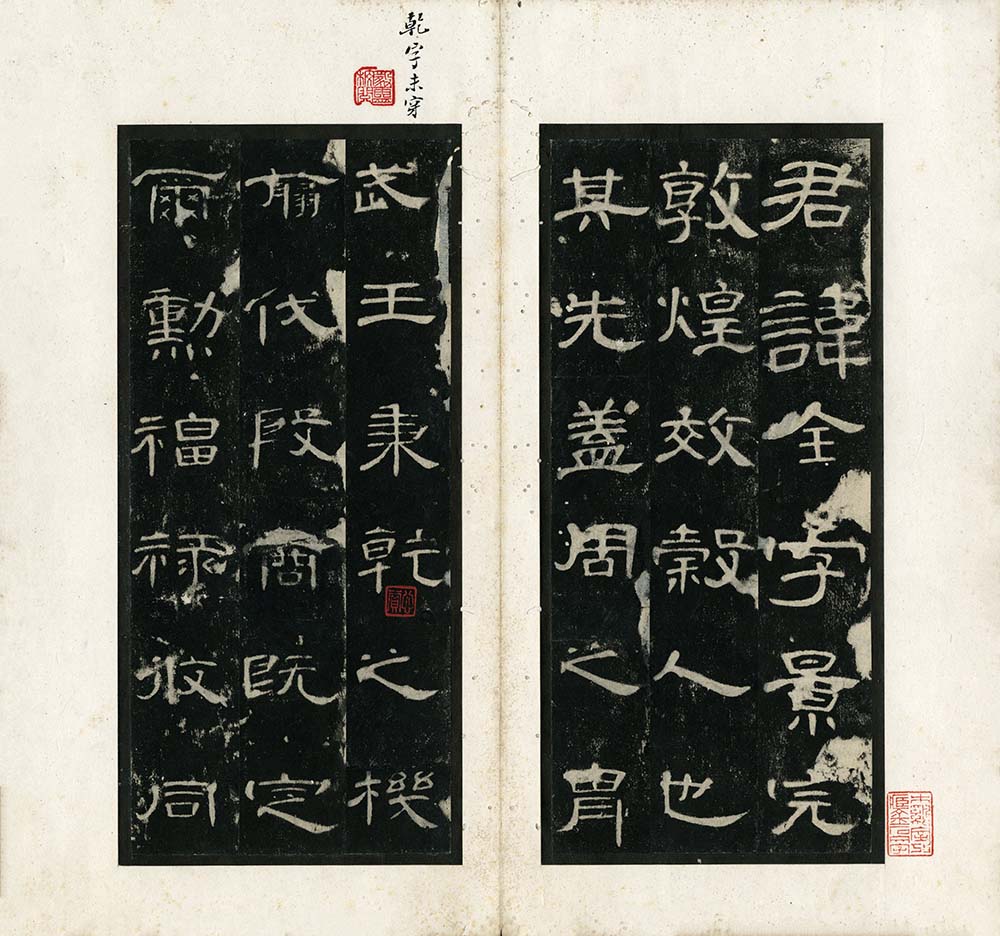 君諱全字景完
敦煌效穀人也
其先蓋周之胄
武王秉乾之機
翦伐殷商既定
爾勳福祿攸同
乾字未穿